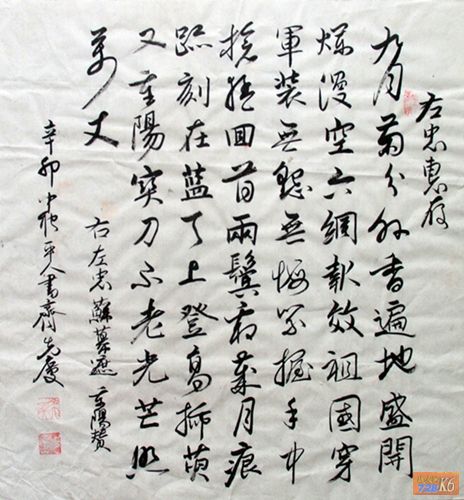 左忠惠存
九月菊分外香遍地盛開
爛漫空報效祖國穿
軍裝無怨無悔緊握手中
槍回首兩鬢霜歲月痕
跡刻在藍天上登高插萸
又重陽寶刀不老光芒照
萬丈
右左忠蘇幕遮重陽贊
辛卯中秋平人書齋志慶
K6